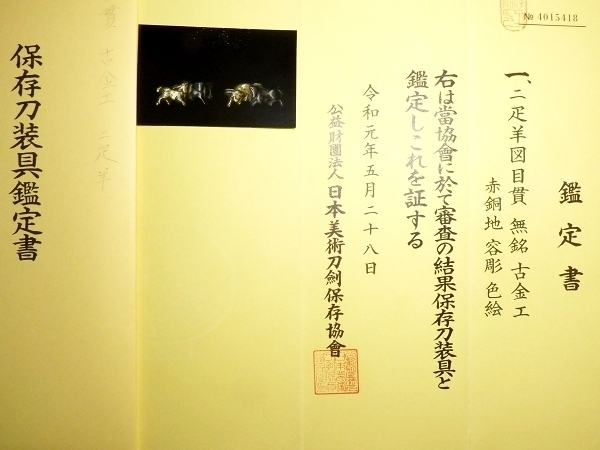 № 4015418
鑑定書
一、二疋羊図目貫 無銘 古金工
赤銅地 容彫 色絵
右は當協會に於て審査の結果保存刀装具と
鑑定しこれを証する
令和元年五月二十八日
公益財團法人 日本美術刀劍保存協會
貫 古金工 二疋羊
保存刀装具鑑定書